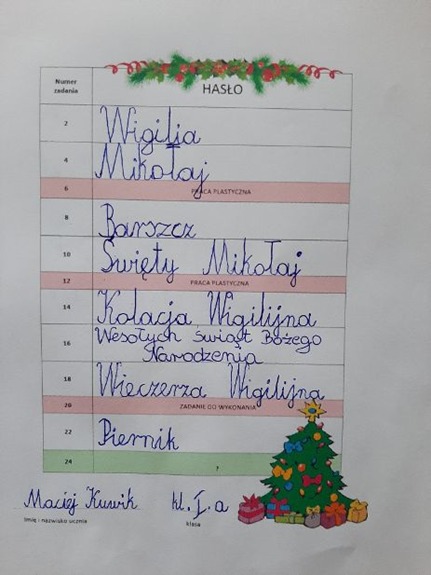 Numer zadania
HASŁO
2 Wigilia
4 Mikołaj
6 PRACA PLASTYCZNA
8 Barszcz
10 Święty Mikołaj
12 PRACA PLASTYCZNA
14 Kolacja Wigilijna
16 Wesołych świąt Bożego
Narodzenia
18 Wieczerza Wigilijna
20 ZADANIE DO WYKONANIA
22 Piernik
24 ?
Maciej Kuwik kl. I. a
Imię i nazwisko ucznia klasa